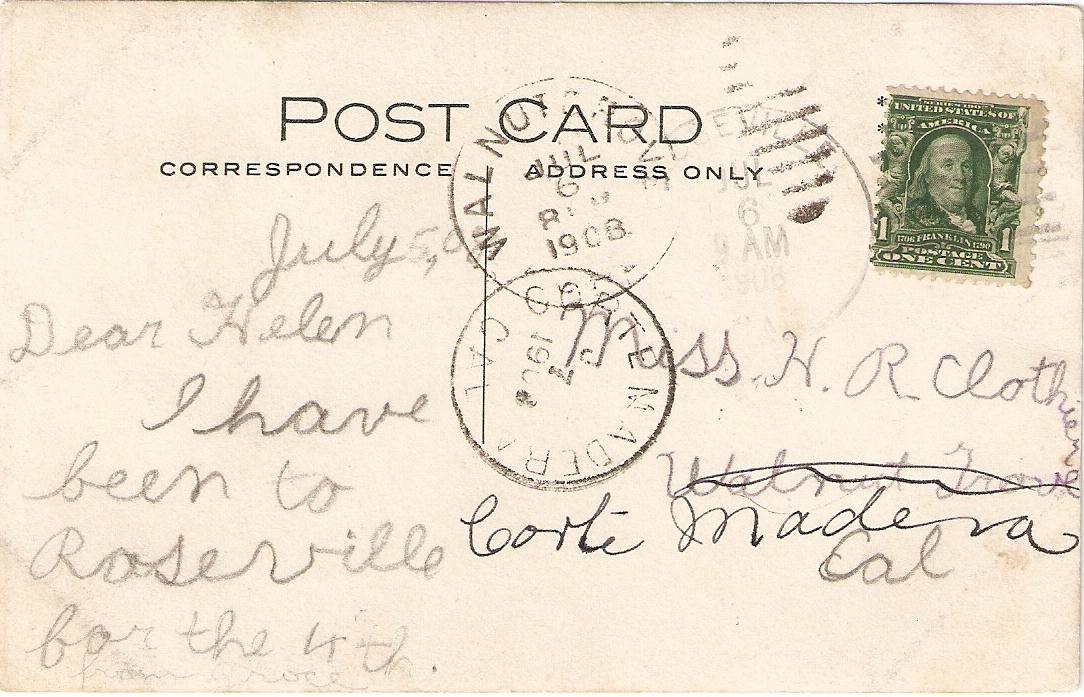 POST CARD
CORRESPONDENCE
ADDRESS ONLY
WALNUT
JUL
6
1908
JUL
6
AM
SERIES 1902
UNITED STATES OF
AMERICA
1 1
1706 FRANKLIN 1790
POSTAGE
ONE CENT
CORTE MADERA CAL
July 5,
Dear Helen
I have
been to
Roseville
for the 4th.
from
Miss. H. R. Clothier
Walnut
Corte Madera
Cal